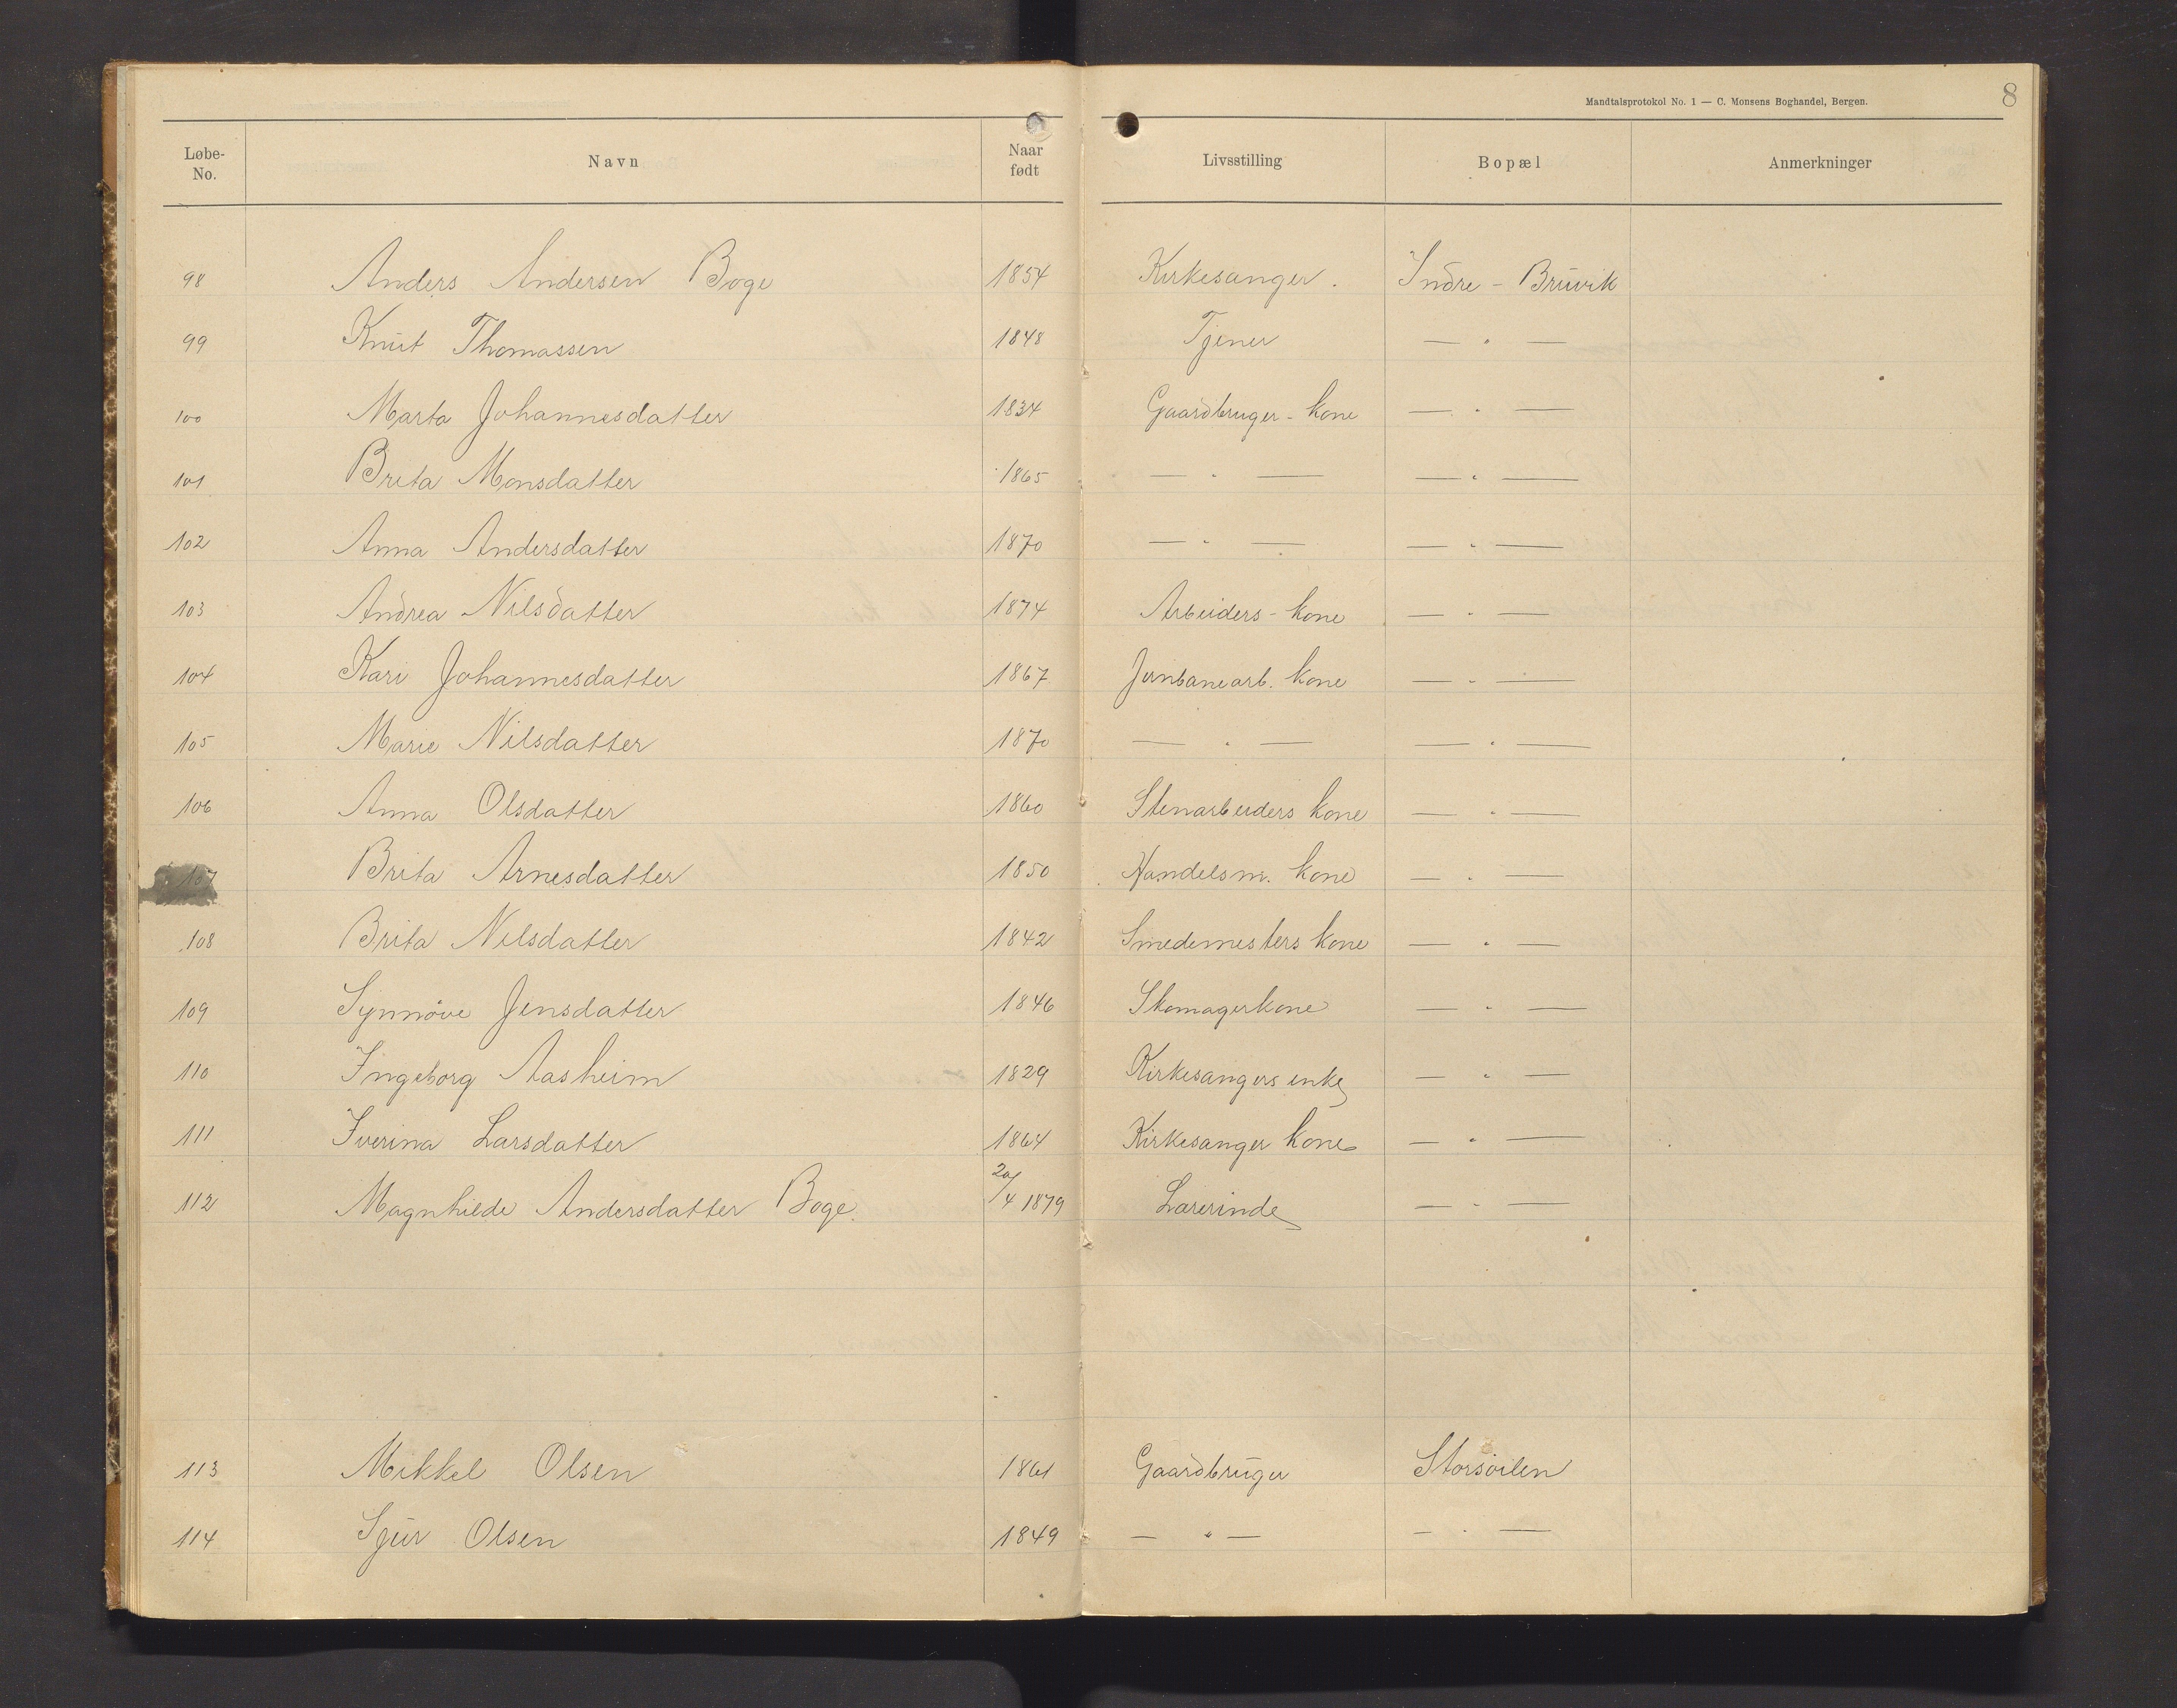 Mandtalsprotokol No. 1 — C. Monsens Boghandel, Bergen. 8
Løbe-No. Navn Naar født Livsstilling Bopæl Anmerkninger
98 Anders Andersen Boge 1854 Kirkesanger. Indre - Bruvik
99 Knut Thomassen 1848 Tjener — " —
100 Marta Johannesdatter 1834 Gaardbruger - kone — " —
101 Brita Monsdatter 1865 — " — — " —
102 Anna Andersdatter 1870 — " — — " —
103 Andrea Nilsdatter 1874 Arbeiders - kone — " —
104 Kari Johannesdatter 1867 Jernbanearb. kone — " —
105 Marie Nilsdatter 1870 — " — — " —
106 Anna Olsdatter 1860 Stenarbeiders kone — " —
107 Brita Arnesdatter 1850 Handelsm. kone — " —
108 Brita Nilsdatter 1842 Smedemesters kone — " —
109 Synnöve Jensdatter 1846 Skomagerkone — " —
110 Ingeborg Aasheim 1829 Kirkesangers enke — " —
111 Iverina Larsdatter 1864 Kirkesanger kone — " —
112 Magnhilde Andersdatter Boge. 20/4 1879 Lærerinde — " —
113 Mikkel Olsen 1861 Gaardbruger Storsöilen
114 Sjur Olsen 1849 — " — — " —